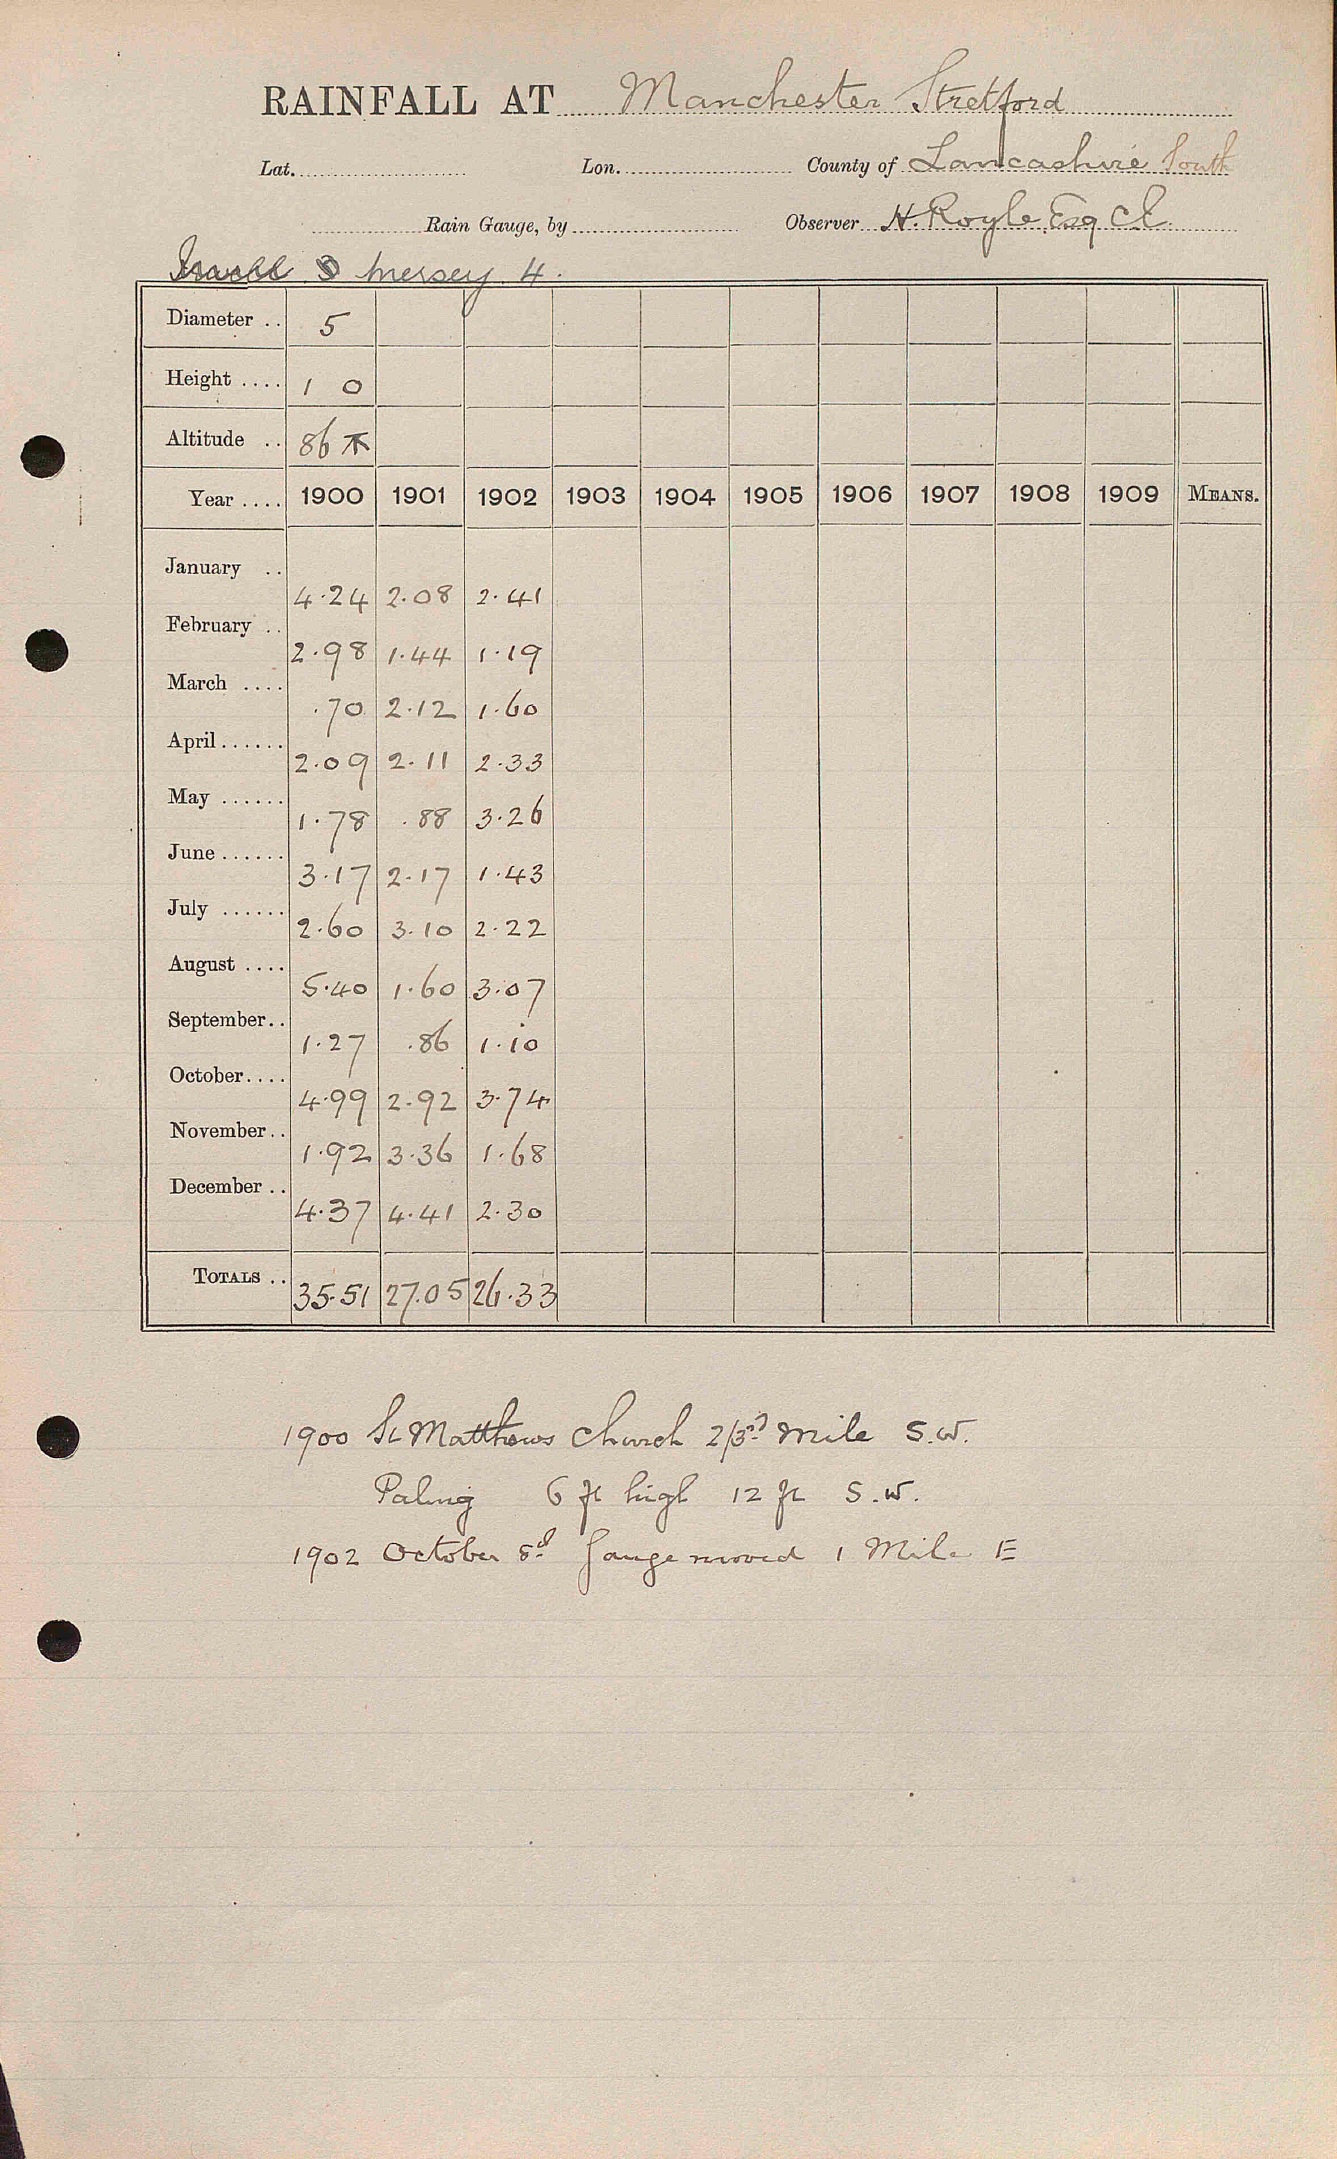 RAINFALL AT Manchester Stretford
Lat. Lon. County of Lancashire South
Rain Gauge, by Observer H. Royle Esq CE
Mersey 4.
Diameter .. 5
Height .... 1 0
Altitude .. 86
Year .... 1900 1901 1902 1903 1904 1905 1906 1907 1908 1909 MEANS.
January .. 4.24 2.08 2.41
February .. 2.98 1.44 1.19
March .... .70 2.12 1.60
April ...... 2.09 2.11 2.33
May ...... 1.78 .88 3.26
June ...... 3.17 2.17 1.43
July ...... 2.60 3.10 2.22
August .... 5.40 1.60 3.07
September.. 1.27 .86 1.10
October.... 4.99 2.92 3.74
November.. 1.92 3.36 1.68
December .. 4.37 4.41 2.30
TOTALS .. 35.51 27.05 26.33
1900 St Matthews Church 2/3rd Mile S.W.
Paling 6 ft high 12 ft S.W.
1902 October Gauge moved 1 Mile E